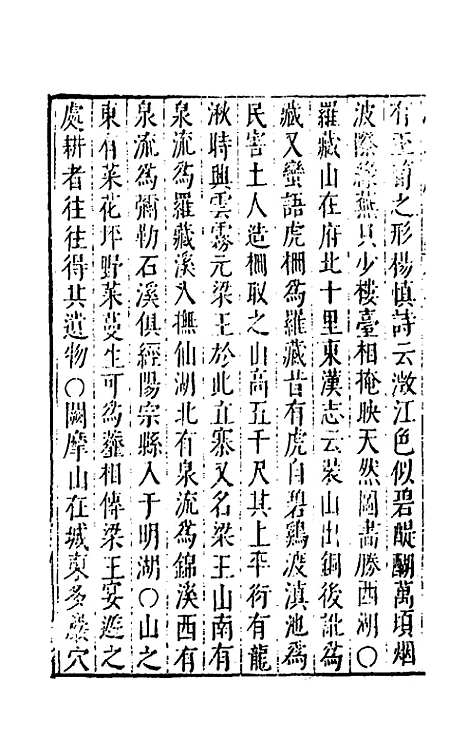 有玉筍之形楊慎詩云澂江色似碧醍醐萬頃烟
波際綠蕪只少樓臺相掩映天然圖畵勝西湖〇
羅藏山在府北十里東漢志云裝山出銅後訛爲
藏又蠻語虎棚爲羅藏昔有虎自碧鷄渡滇池爲
民害土人造棚取之山高五千尺其上平衍有龍
湫時興雲霧元梁王於此立寨又名梁王山南有
泉流爲羅藏溪入撫仙湖北有泉流爲錦溪西有
泉流爲彌勒石溪俱經陽宗縣入于明湖〇山之
東有菜花坪野菜蔓生可爲虀相傳梁王妄遊之
處耕者往往得其遺物〇闕摩山在城東多巖穴